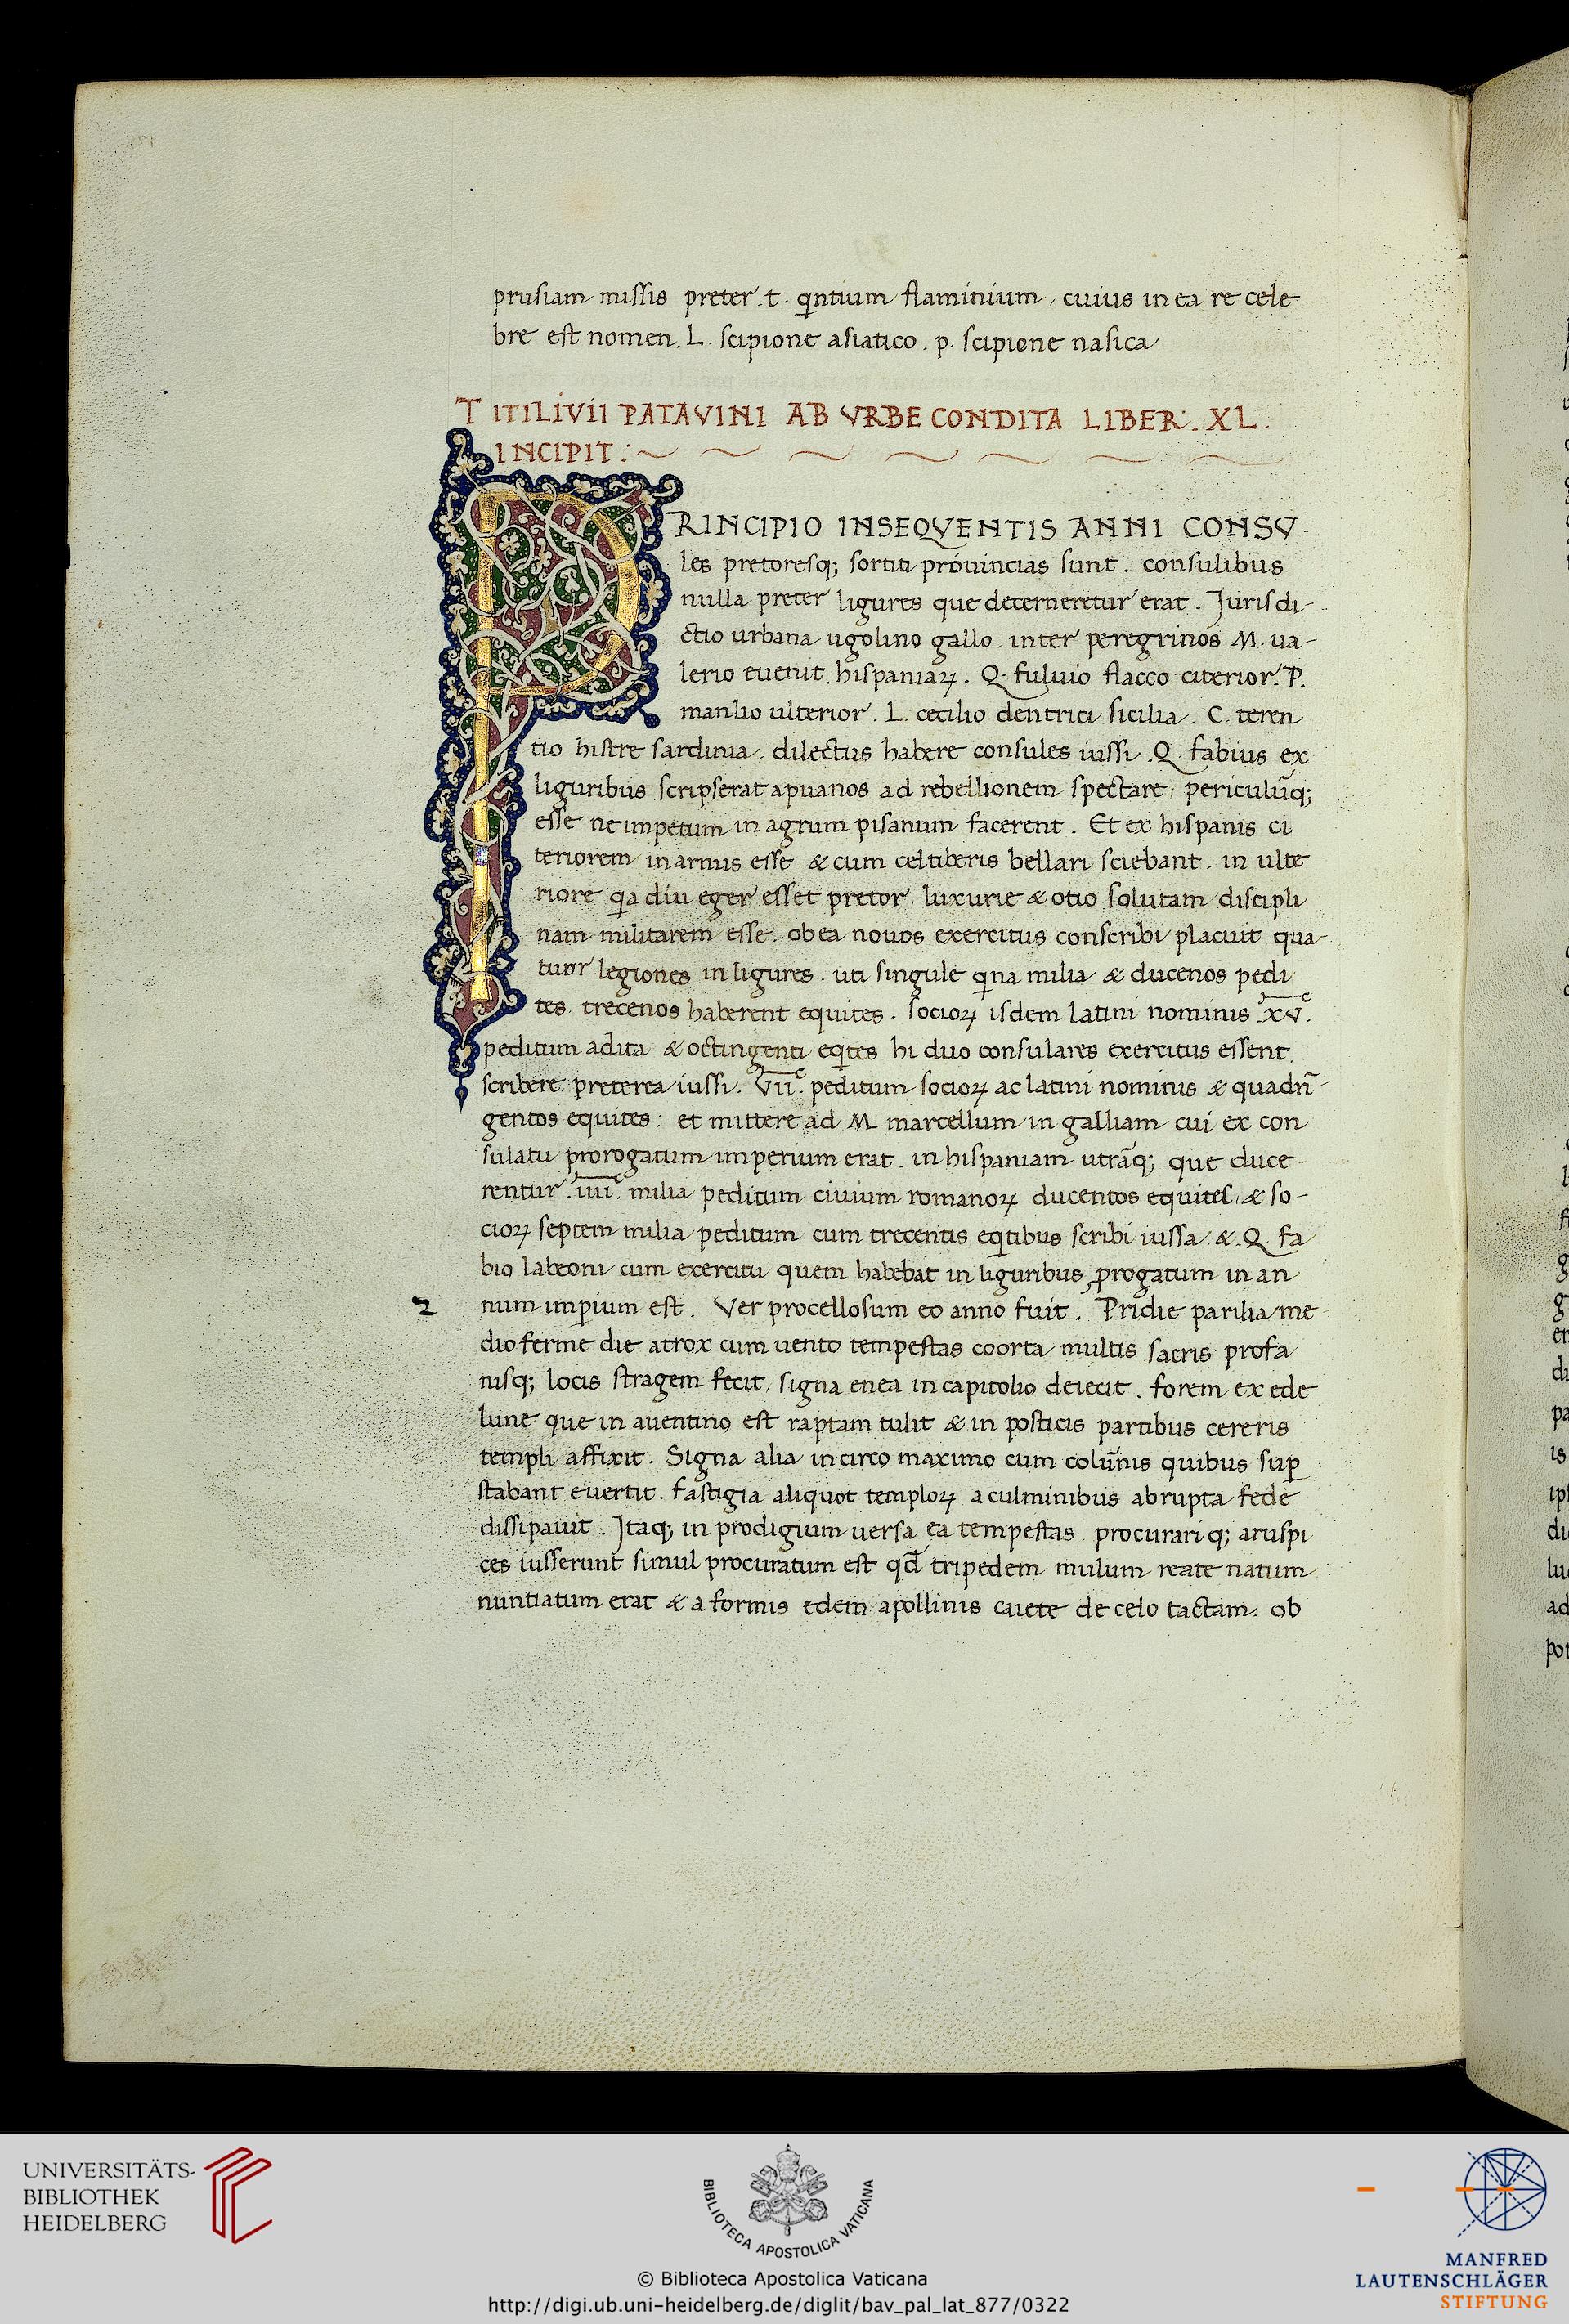 prusiam missis preter .t. qͥntium flaminium, cuius in ea re cele
bre est nomen. L. scipione asiatico. p. scipione nasica
TITI LIVII PATAVINI AB VRBE CONDITA LIBER. XL.
INCIPIT:
PRINCIPIO INSEQVENTIS ANNI CONSV-
les pretoresq; sortiti prouincias sunt. consulibus
nulla preter ligures que decerneretur erat. Jurisdi-
ctio urbana ugolino gallo. inter peregrinos M. ua-
lerio euenit. hispaniaꝝ. Q. fuluio flacco citerior. P.
manlio ulterior. L. cecilio dentrici sicilia. C. teren
tio histre sardinia. dilectus habere consules iussi. Q. fabius ex
liguribus scripserat apuanos ad rebellionem spectare, periculūq;
esse ne impetum in agrum pisanum facerent. Et ex hispanis ci
teriorem in armis esse & cum celtiberis bellari sciebant. in ulte
riore qͥa diu eger esset pretor, luxurie & otio solutam discipli
nam militarem esse. ob ea nouos exercitus conscribi placuit qua-
tuor legiones in ligures. uti singule qͥna milia & ducenos pedi
tes. trecenos haberent equites. socioꝝ isdem latini nominis .xv.
peditum adita & octingenti eqͥtes hi duo consulares exercitus essent.
scribere preterea iussi. VII. peditum socioꝝ ac latini nominis & quadrī-
gentos equites: et mittere ad M. marcellum in galliam cui ex con
sulatu prorogatum imperium erat. in hispaniam utrāq; que duce-
rentur .iiii. milia peditum ciuium romanoꝝ ducentos equites, & so-
cioꝝ septem milia peditum cum trecentis eqͥtibus scribi iussa. & .Q. fa
bio labeoni cum exercitu quem habebat in liguribus ꝓrogatum in an
2 num imꝑium est. Ver procellosum eo anno fuit. Pridie parilia me-
dio ferme die atrox cum uento tempestas coorta multis sacris profa
nisq; locis stragem fecit, signa enea in capitolio deiecit. forem ex ede
lune que in auentino est raptam tulit & in posticis partibus cereris
templi affixit. Signa alia in circo maximo cum colūnis quibus suꝑ
stabant euertit. fastigia aliquot temploꝝ a culminibus abrupta fede
dissipauit. Itaq; in prodigium uersa ea tempestas. procurariq; aruspi
ces iusserunt simul procuratum est qđ tripedem mulum reate natum
nuntiatum erat & a formis edem apollinis caiete de celo tactam. ob
UNIVERSITÄTS-
BIBLIOTHEK
HEIDELBERG
BIBLIOTECA APOSTOLICA VATICANA
© Biblioteca Apostolica Vaticana
http://digi.ub.uni-heidelberg.de/diglit/bav_pal_lat_877/0322
MANFRED
LAUTENSCHLÄGER
STIFTUNG